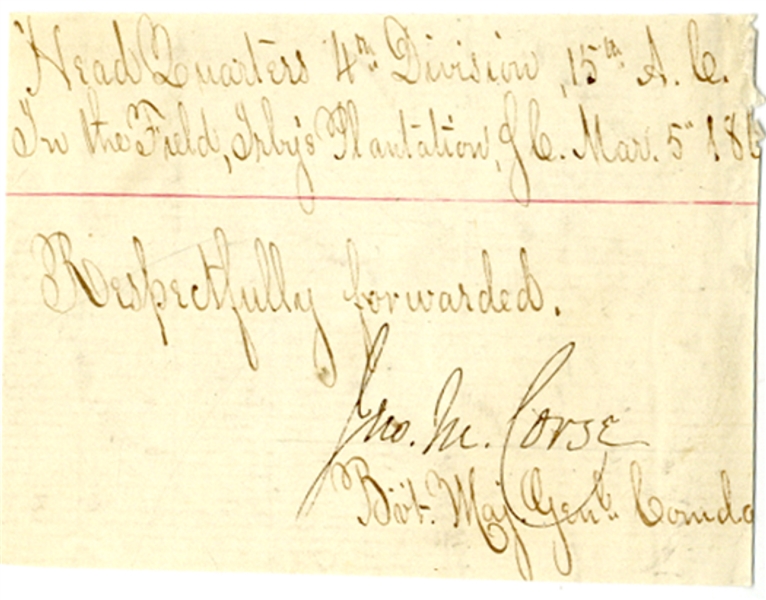 Head Quarters 4th Division, 15th A. C.
In the Field, Irby's Plantation, S C. Mar. 5" 186
Respectfully forwarded.
Jno. M. Corse
Bvt. Maj. Genl. Comdg